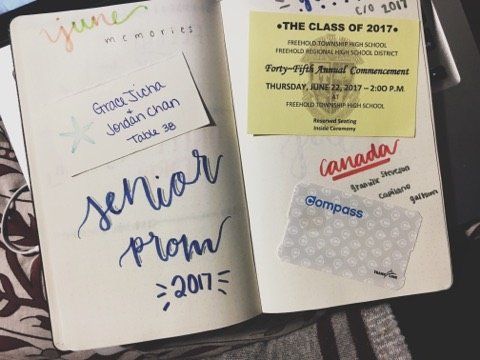 june
memories
Grace Jicha
+
Jordan Chan
Table 38
senior
prom
2017
c/o 2017
•THE CLASS OF 2017•
FREEHOLD TOWNSHIP HIGH SCHOOL
FREEHOLD REGIONAL HIGH SCHOOL DISTRICT
Forty~Fifth Annual Commencement
THURSDAY, JUNE 22, 2017 – 2:00 P.M.
AT
FREEHOLD TOWNSHIP HIGH SCHOOL
Reserved Seating
Inside Ceremony
canada
Granville
capilano
gastown
Compass
TRANS LINK